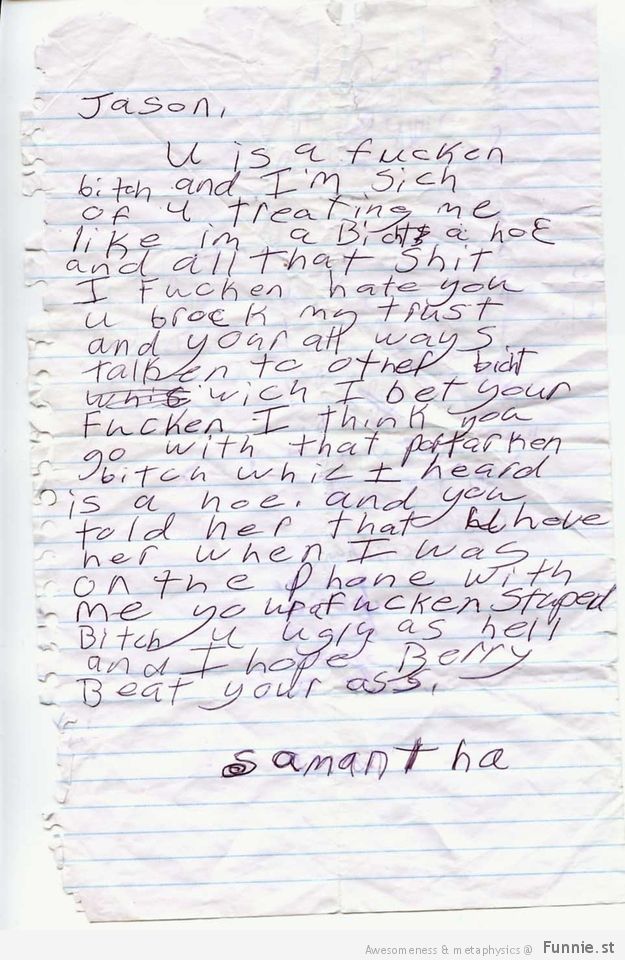 Jason,
U is a fucken
bitch and I'm sich
of u treating me
like im a Bicht a hoe
and all that shit
I Fucken hate you
u brock my trust
and your all ways
talken to other bicht
wich I bet your
Fucken I think you
go with that
bitch whic I heard
is a hoe. and you
told her that
her when I was
on the Phone with
me your a fucken stuped
Bitch u ugly as hell
and I hope Berry
Beat your ass.
Samantha
Awesomeness & metaphysics @ Funnie.st